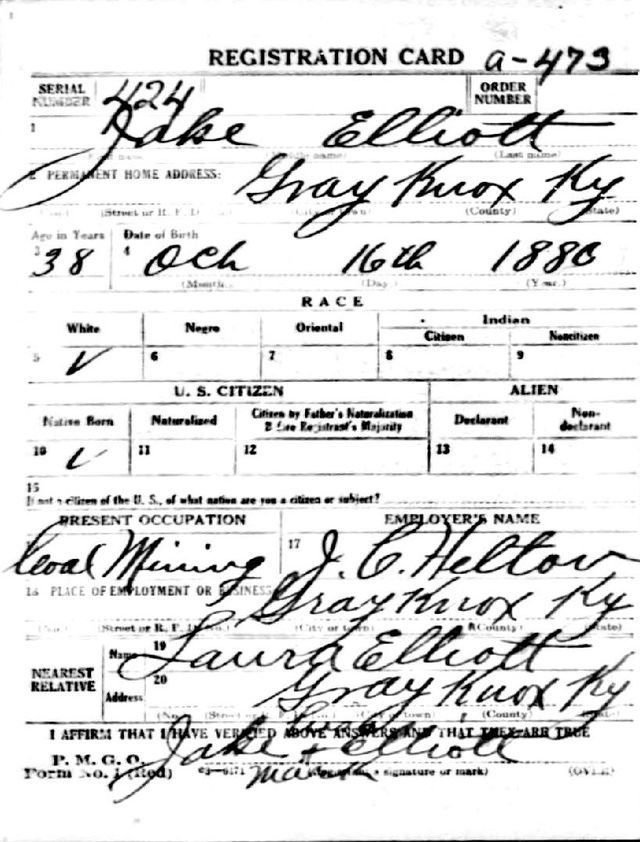 REGISTRATION CARD A-473
SERIAL NUMBER 424 ORDER NUMBER
1 Jake Elliott
(First name) (Middle name) (Last name)
2 PERMANENT HOME ADDRESS: Gray Knox Ky
(No.) (Street or R. F. D. No.) (City or town) (County) (State)
Age in Years Date of Birth
3 38 4 Oct 16th 1880
(Month.) (Day.) (Year.)
RACE
White Negro Oriental Indian
Citizen Noncitizen
5 ✓ 6 7 8 9
U. S. CITIZEN ALIEN
Native Born Naturalized Citizen by Father's Naturalization Before Registrant's Majority Declarant Non-declarant
10 ✓ 11 12 13 14
15
If not a citizen of the U. S., of what nation are you a citizen or subject?
PRESENT OCCUPATION EMPLOYER'S NAME
Coal Mining 17 J. C. Helton
18 PLACE OF EMPLOYMENT OR BUSINESS: Gray Knox Ky
(No.) (Street or R. F. D. No.) (City or town) (County) (State)
NEAREST RELATIVE Name 19 Laura Elliott
Address 20 Gray Knox Ky
(No.) (Street or R. F. D. No.) (City or town) (County) (State)
I AFFIRM THAT I HAVE VERIFIED ABOVE ANSWERS AND THAT THEY ARE TRUE
P. M. G. O.
Form No. 1 (Red) 03-6171 Jake his x mark Elliott
(Registrant's signature or mark) (OVER)